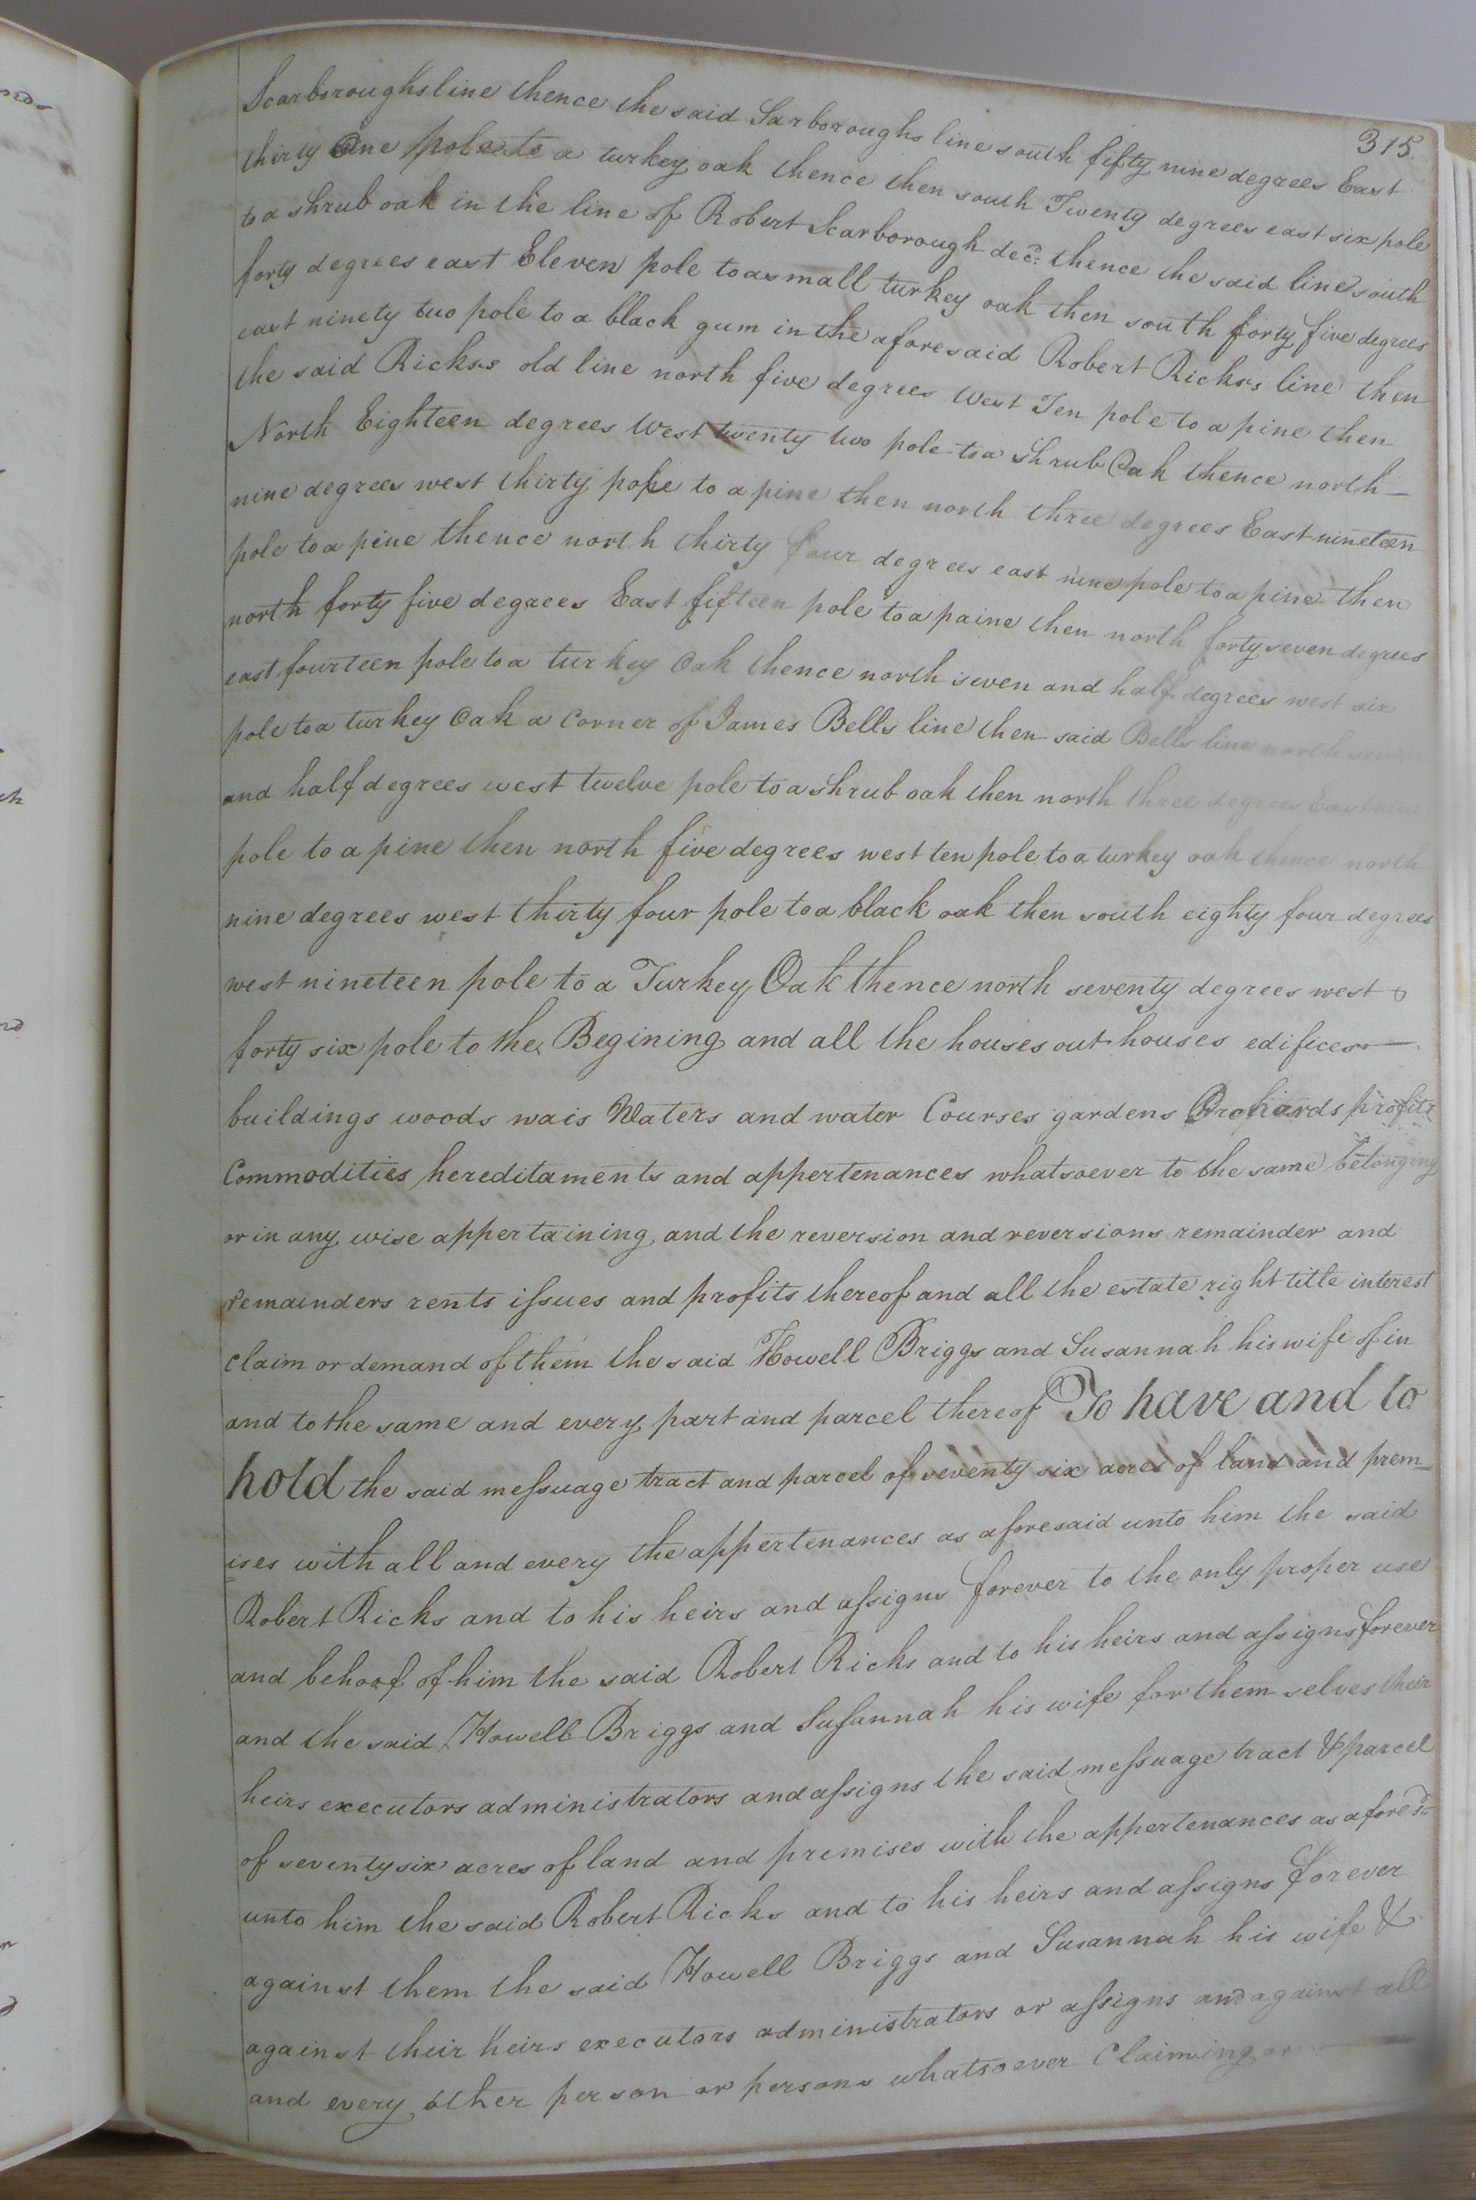 315.
Scarboroughs line thence the said Sarboroughs line south fifty nine degrees East
thirty One pole to a turkey oak thence then south Twenty degrees east six pole
to a shrub oak in the line of Robert Scarborough decd. thence the said line south
forty degrees east Eleven pole to a small turkey oak then south forty five degrees
east ninety two pole to a black gum in the aforesaid Robert Rickss line then
the said Rickss old line north five degrees West Ten pole to a pine then
North Eighteen degrees West twenty two pole to a shrub Oak thence north
nine degrees west thirty pole to a pine then north three degrees East nineteen
pole to a pine thence north thirty four degrees east nine pole to a pine then
north forty five degrees East fifteen pole to a paine then north forty seven degrees
east fourteen pole to a turkey Oak thence north seven and half degrees west six
pole to a turkey Oak a Corner of James Bells line then said Bells line north seven
and half degrees west twelve pole to a shrub oak then north three degrees East
pole to a pine then north five degrees west ten pole to a turkey oak thence north
nine degrees west thirty four pole to a black oak then south eighty four degrees
west nineteen pole to a Turkey Oak thence north seventy degrees west
forty six pole to the Begining and all the houses out houses edifices
buildings woods wais Waters and water Courses gardens Orchards profits
Commodities hereditaments and appertenances whatsoever to the same belonging
or in any wise appertaining and the reversion and reversions remainder and
remainders rents issues and profits thereof and all the estate right title interest
claim or demand of them the said Howell Briggs and Susannah his wife of in
and to the same and every part and parcel thereof To have and to
hold the said messuage tract and parcel of seventy six acres of land and prem-
ises with all and every the appertenances as aforesaid unto him the said
Robert Ricks and to his heirs and assigns forever to the only proper use
and behoof of him the said Robert Ricks and to his heirs and assigns forever
and the said Howell Briggs and Susannah his wife for them selves their
heirs executors administrators and assigns the said messuage tract & parcel
of seventy six acres of land and premises with the appertenances as afores'd
unto him the said Robert Ricks and to his heirs and assigns forever
against them the said Howell Briggs and Susannah his wife &
against their heirs executors administrators or assigns and against all
and every other person or persons whatsoever Claiming or